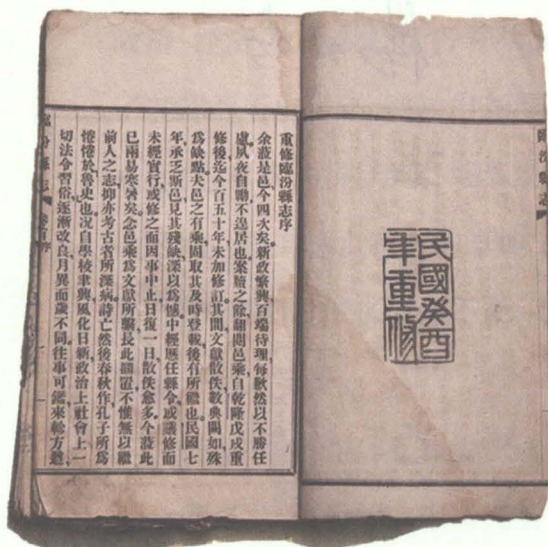 臨汾縣志
民國癸酉
年重修
重修臨汾縣志序
余蒞是邑今四次矣。新政繁興百端待理每歉然以不勝任
處夙夜自勵不遑居也案牘之餘繙閱邑乘自乾隆戊戌重
修後迄今百五十年未加修訂其間文獻散佚數典闕如殊
爲缺點夫邑之有乘固取其及時登載後有所繼也民國七
年承乏斯邑見其殘缺深以爲憾中經歷任縣令或議修而
未經實行或修之而因事中止日復一日散佚愈多今蒞此
已兩易寒暑矣念邑乘爲文獻所繫長此擱置不惟無以繼
前人之志抑亦考古者所深病詩亡然後春秋作孔子所爲
惓惓於魯史也況自學校聿興風化日新政治上社會上一
切法令習俗逐漸改良月異而歲不同往事可鑑來軫方遒
臨汾縣志 卷首序